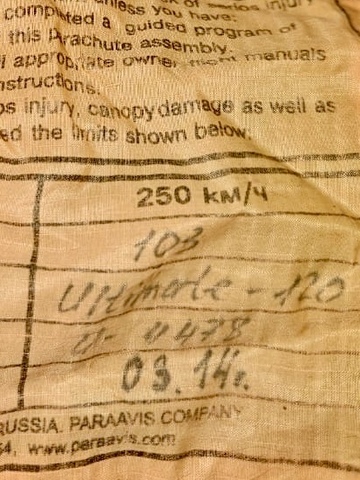 of serios injury
unless you have:
completed a guided program of
this Parachute assembly.
appropriate owner manuals
instructions.
injury, canopy damage as well as
the limits shown below:
250 км/ч
103
Ultimate - 120
03.14г.
RUSSIA. PARAAVIS COMPANY
www.paraavis.com